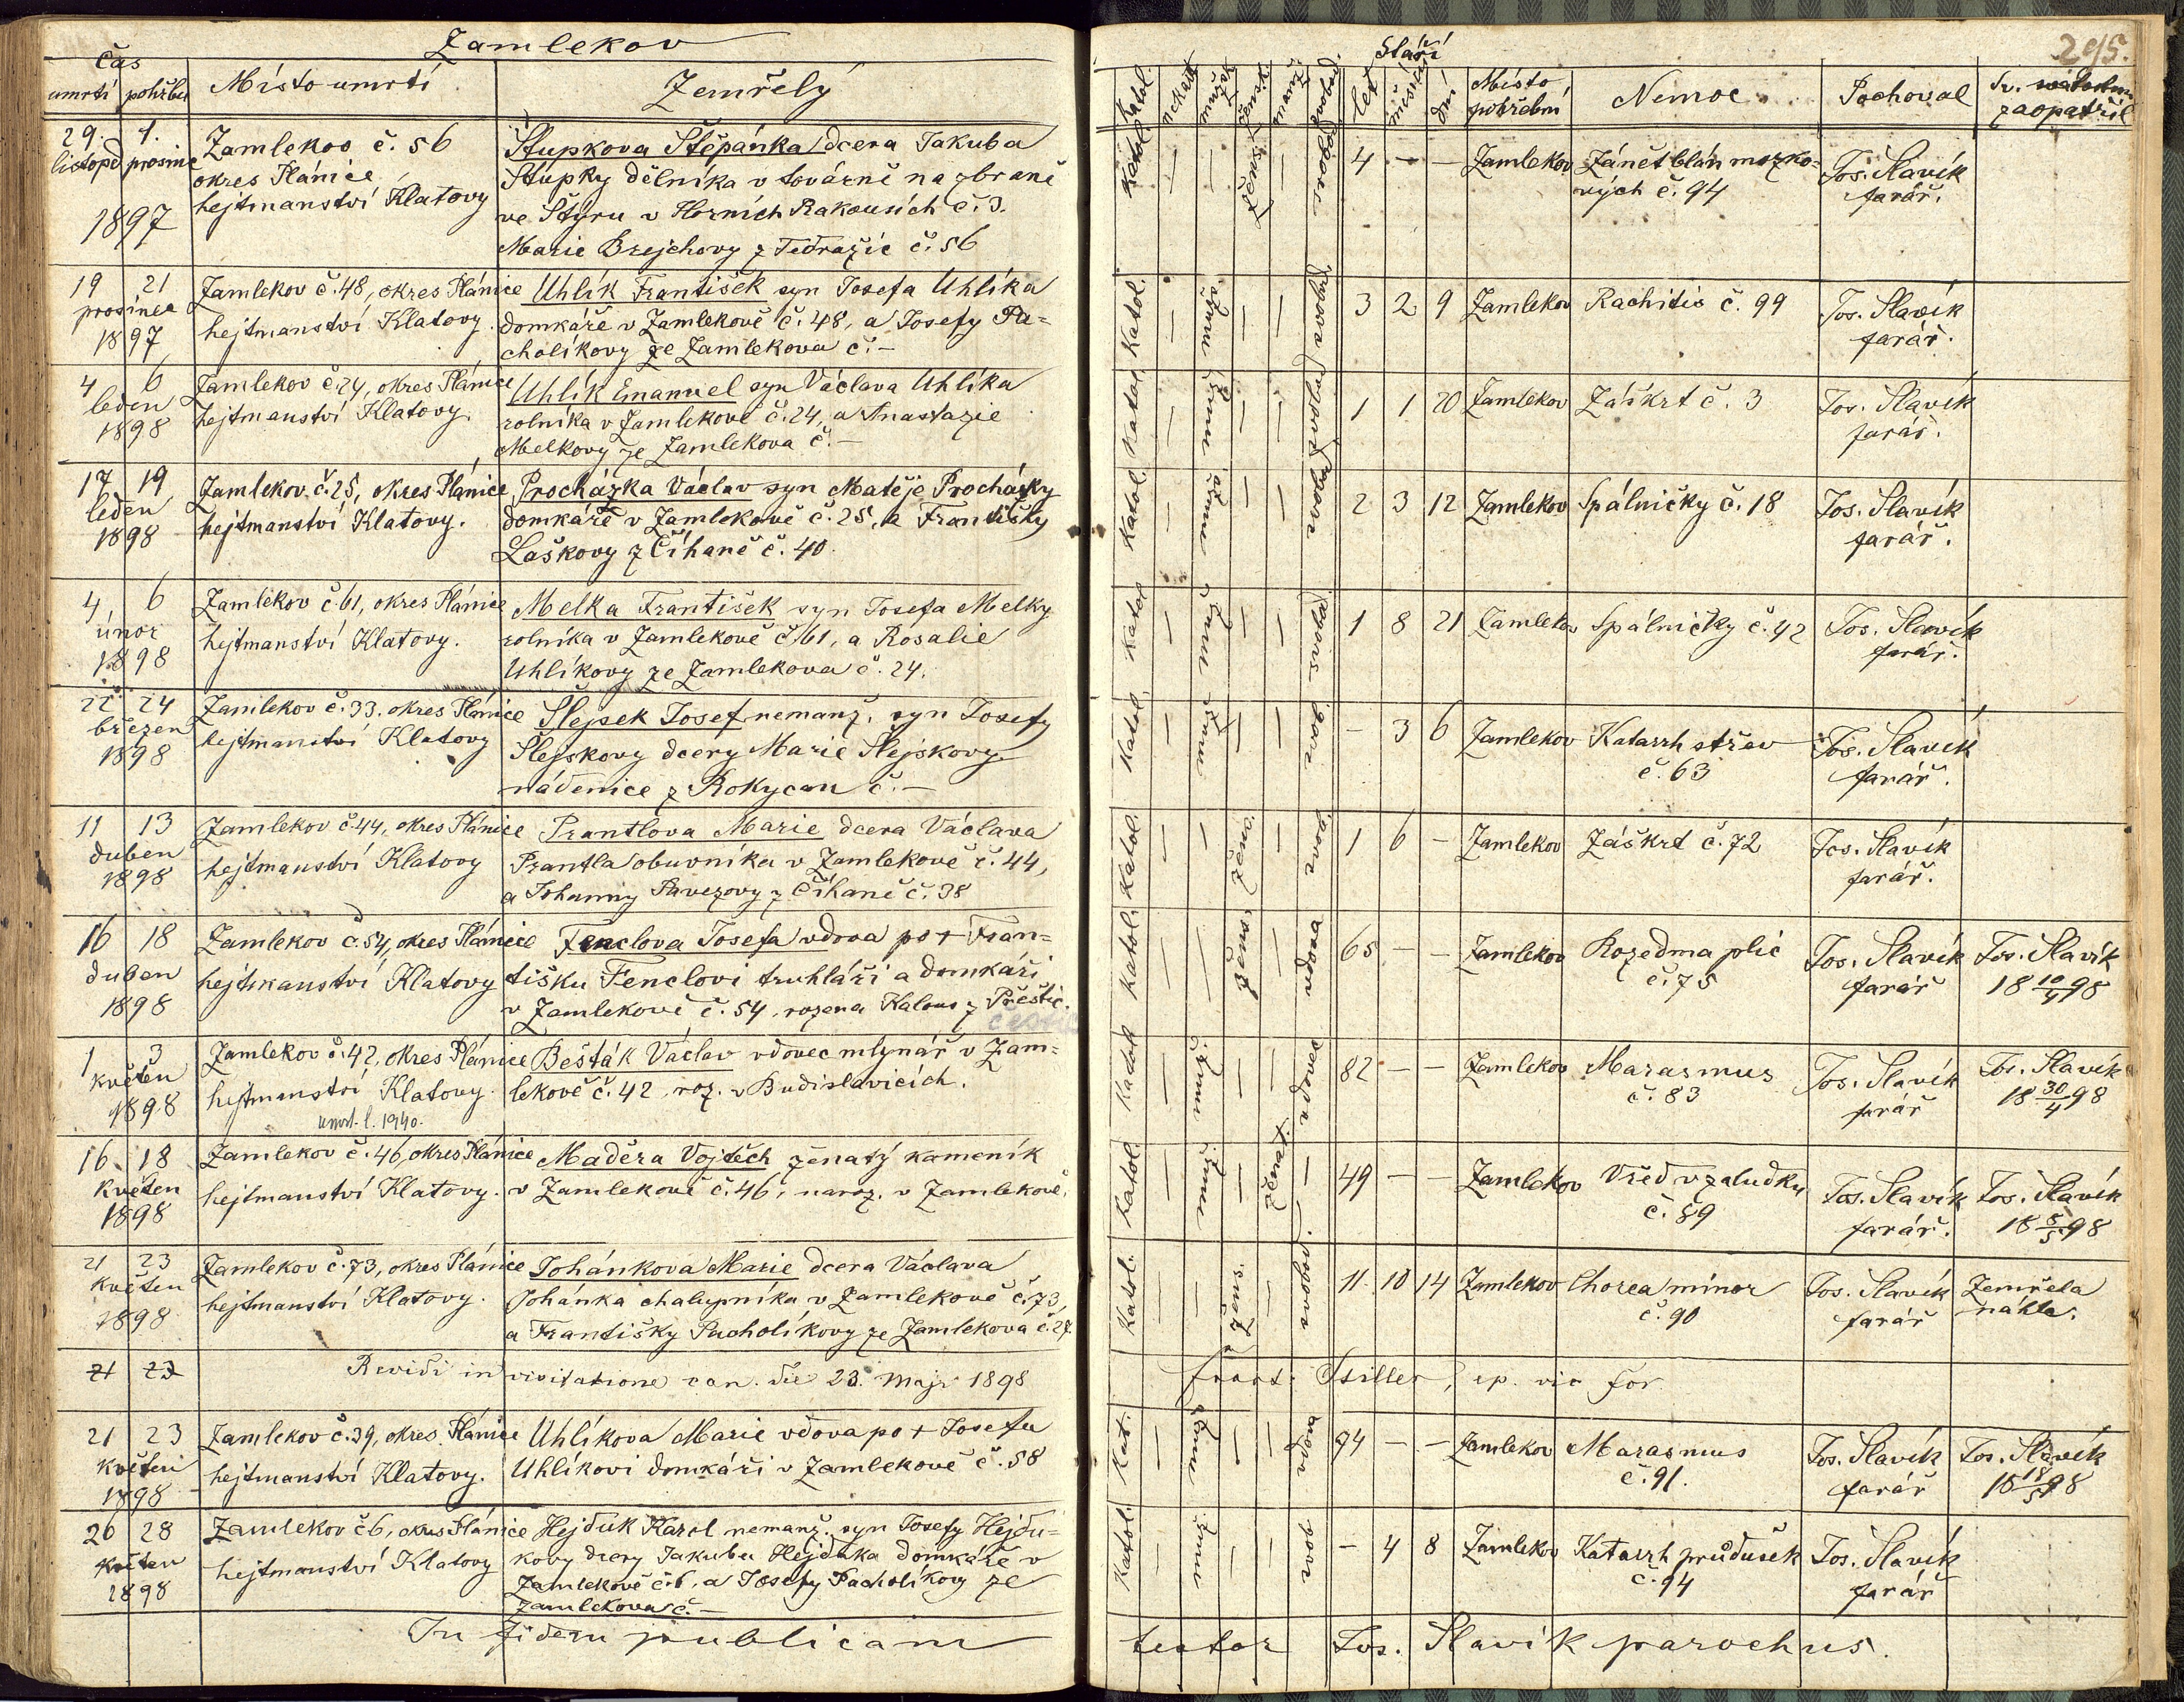 Zamlekov
čas
umrtí pohřbu Místo umrtí Zemřelý
29. 1. Zamlekov č. 56 Štupkova Štěpánka dcera Jakuba
listopad prosinec okres Plánice Štupky dělníka v továrně na zbraně
1897 hejtmanství Klatovy ve Štyru v Horních Rakousích č. 3.
Marie Brejchovy z Tedražic č. 56
19 21 Zamlekov č. 48, okres Plánice Uhlík František syn Josefa Uhlíka
prosince hejtmanství Klatovy. domkáře v Zamlekově č. 48, a Josefy Pa=
1897 cholíkovy ze Zamlekova č. –
4 6 Zamlekov č. 24, okres Plánice Uhlík Emanuel syn Václava Uhlíka
leden hejtmanství Klatovy. rolníka v Zamlekově č. 24, a Anastazie
1898 Melkovy ze Zamlekova č. –
17 19 Zamlekov č. 25, okres Plánice Procházka Václav syn Matěje Procházky
leden hejtmanství Klatovy. domkáře v Zamlekově č. 25, a Františky
1898 Laškovy z Číhaně č. 40.
4, 6 Zamlekov č. 61, okres Plánice Melka František syn Josefa Melky
únor hejtmanství Klatovy. rolníka v Zamlekově č. 61, a Rosalie
1898 Uhlíkovy ze Zamlekova č. 24.
22 24 Zamlekov č. 33. okres Plánice Šlejsek Josef nemanž. syn Josefy
březen hejtmanství Klatovy Šlejskovy dcery Marie Šlejskovy
1898 nádenice z Rokycan č. –
11 13 Zamlekov č. 44, okres Plánice Prantlova Marie dcera Václava
duben hejtmanství Klatovy Prantla obuvníka v Zamlekově č. 44,
1898 a Johanny Pavezovy z Číhaně č. 38
16 18 Zamlekov č. 54, okres Plánice Fenclova Josefa vdova po + Fran=
duben hejtmanství Klatovy tišku Fenclovi truhláři a domkáři
1898 v Zamlekově č. 54, rozena Kalous z Přeštic.
1 3 Zamlekov č. 42, okres Plánice Bešták Václav vdovec mlynář v Zam=
květen hejtmanství Klatovy. lekově č. 42, roz. v Budislavicích.
1898
16. 18 Zamlekov č. 46, okres Plánice Maděra Vojtěch ženatý kameník
květen hejtmanství Klatovy. v Zamlekově č. 46, naroz. v Zamlekově.
1898
21 23 Zamlekov č. 73, okres Plánice Johánkova Marie dcera Václava
květen hejtmanství Klatovy. Johánka chalupníka v Zamlekově č. 73,
1898 a Františky Pacholíkovy ze Zamlekova č. 27.
21 23 Revidi in visitatione can. die 23. Maji 1898
21 23 Zamlekov č. 39, okres Plánice Uhlíkova Marie vdova po + Josefu
květen hejtmanství Klatovy. Uhlíkovi domkáři v Zamlekově č. 58
1898
26 28 Zamlekov č 6, okres Plánice Hejduk Karel nemanž. syn Josefy Hejdu=
květen hejtmanství Klatovy kovy dcery Jakuba Hejduka domkáře v
1898 Zamlekově č. 6, a Josefy Pacholíkovy ze
Zamlekova č. –
In fidem publicam
295.
Stáří
Katol. Nekatol. let měsíců dní Místo pohřební Nemoc Pochoval Sv. svátostmi
zaopatřil
Katol. – – ženské – 4 – – Zamlekov Zánět blán mozko= Jos. Slavík
vých č. 94 farář.
Katol. – – – 3 2 9 Zamlekov Rachitis č. 99 Jos. Slavík
farář.
Katol – – – 1 1 20 Zamlekov Záškrt č. 3 Jos. Slavík
farář.
Katol. – – – 2 3 12 Zamlekov Spálničky č. 18 Jos. Slavík
farář.
Katol – – – 1 8 21 Zamlekov Spálničky č. 42 Jos. Slavík
farář.
Katol. – – – – 3 6 Zamlekov Katarrh střev Jos. Slavík
č. 63 farář.
Katol. – – – 1 6 – Zamlekov Záškrt č. 72 Jos. Slavík
farář.
Katol. – – – vdova 65 – – Zamlekov Rozedma plic Jos. Slavík Jos. Slavík
č. 75 farář 18 10/4 98
Katol – – – vdovec 82 – – Zamlekov Marasmus Jos. Slavík Jos. Slavík
č. 83 farář 18 30/4 98
Katol. – – ženatý – 49 – – Zamlekov Vřed v zaludku Jos. Slavík Jos. Slavík
č. 89 farář. 18 8/5 98
Katol. – – – 11. 10 14 Zamlekov Chorea minor Jos. Slavík Zemřela
č. 90 farář náhle.
Tsiller, ep. vic for
Kat. – – – vdova 74 – – Zamlekov Marasmus Jos. Slavík Jos. Slavík
č. 91. farář 18 18/5 98
Katol. – – – – 4 8 Zamlekov Katarrh průdušek Jos. Slavík
č. 94 farář
testor Jos. Slavík parochus.